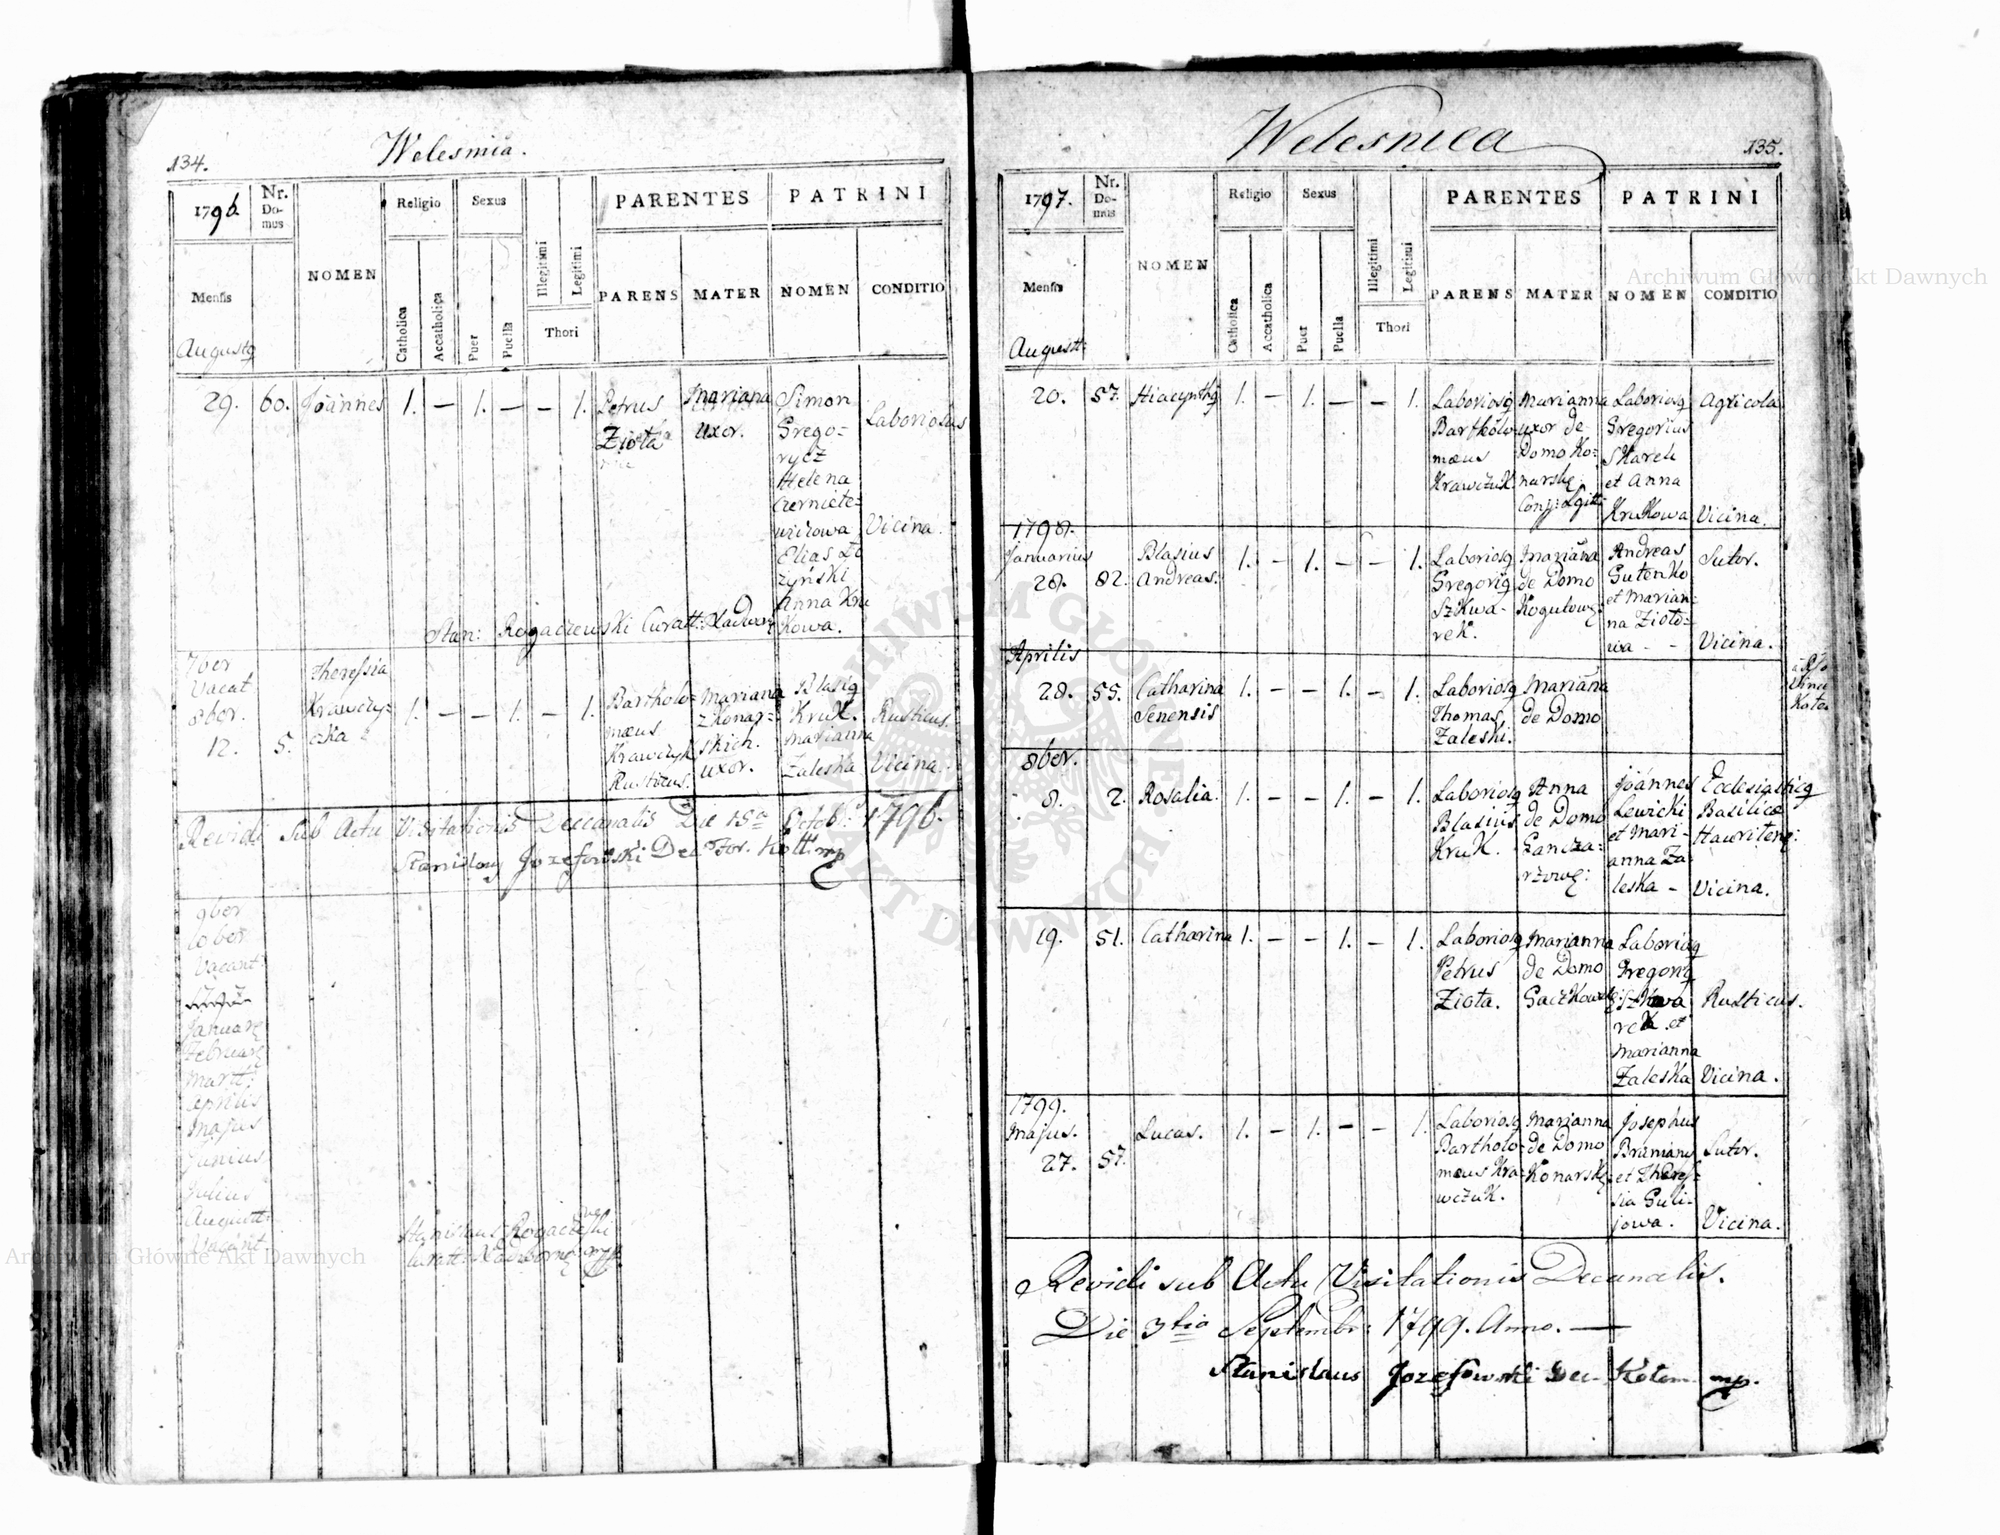 134.
Welesnia.
1796.
Nr. Domus
NOMEN
Religio
Sexus
PARENTES
PATRINI
Catholica
Accatholica
Puer
Puella
Illegitimi
Legitimi
Thori
PARENS
MATER
NOMEN
CONDITIO
Mensis
Augustq
29. 60. Joannes 1. — 1. — — 1.
Petrus
Ziota
Mariana
uxor.
Simon
Grego=
rycz
Helena
Czerniete=
wiczowa
Elias Zo
zyński
Anna Kru
kowa.
Laboriosus
Vicina.
Stan: Rogaczewski Curatt: Nadwor
7ber
Vacat
8ber.
12. 5.
Theressia
Krawczy=
czka
1. — — 1. — 1.
Bartholo=
mæus
Krawczyk
Rusticus.
Mariana
z Konar=
skich.
uxor.
Blasiq
Kruk.
Marianna
Zaleska
Rusticus.
Vicina.
Revidi Sub Actu Visitationis Decanalis Die 15a Octob: 1796.
Stanislaus Jozefowski Dec For. Kott mp
9ber
10ber
Vacant
Januarq
Februarq
Martt:
Aprilis
Majus
Junius
Julius
Augustt:
Vacant
Stanislaus Rogaczewski
Curatt: Nadworne mpp
Welesnica
135.
1797.
Nr. Domus
NOMEN
Religio
Sexus
PARENTES
PATRINI
Catholica
Accatholica
Puer
Puella
Illegitimi
Legitimi
Thori
PARENS
MATER
NOMEN
CONDITIO
Mensis
Augustt:
20. 57. Hiacynthq 1. — 1. — — 1.
Laboriosq
Bartholo=
mæus
Krawczuk.
Marianna
uxor de
Domo Ko=
narskę:
Conj: Lgitt:
Laboriosq
Gregorius
Skarek
et Anna
Krukowa
Agricola
Vicina.
1798.
Januarius
28. 82.
Blasius
Andreas.
1. — 1. — — 1.
Laboriosq
Gregoriq
Szkwa-
rek.
Mariana
de Domo
Kogutowę:
Andreas
Gutenko
et Marian=
na Zioto=
wa - -
Sutor.
Vicina.
Aprilis
28. 55.
Catharina
Senensis
1. — — 1. — 1.
Laboriosq
Thomas
Zaleski.
Mariana
de Domo
8ber.
8. 2. Rosalia. 1. — — 1. — 1.
Laboriosq
Blasius
Kruk.
Anna
de Domo
Gancza=
rzowę:
Joannes
Lewicki
et Mari-
anna Za-
leska -
Ecclesiasticq
Basilicæ
Hawritenę:
Vicina.
19. 51. Catharina 1. — — 1. — 1.
Laboriosq
Petrus
Ziota.
Marianna
de Domo
Gaczkowskę:
Laboriosq
Gregoriq
Szkwa
rek et
Marianna
Zaleska
Rusticus.
Vicina.
1799.
Majus.
27. 57. Lucas. 1. — 1. — — 1.
Laboriosq
Bartholo-
mæus Kra-
wczuk.
Marianna
de Domo
Konarskę
Josephus
et Theres=
sia Guli-
jowa.
Sutor.
Vicina.
Revidi sub Actu Visitationis Decanalis.
Die 3tia Septembr: 1799. Anno. —
Stanislaus Jozefowski Dec- Kolom- mp.
Archiwum Główne Akt Dawnych
Archiwum Główne Akt Dawnych
ARCHIWUM GŁÓWNE AKT DAWNYCH